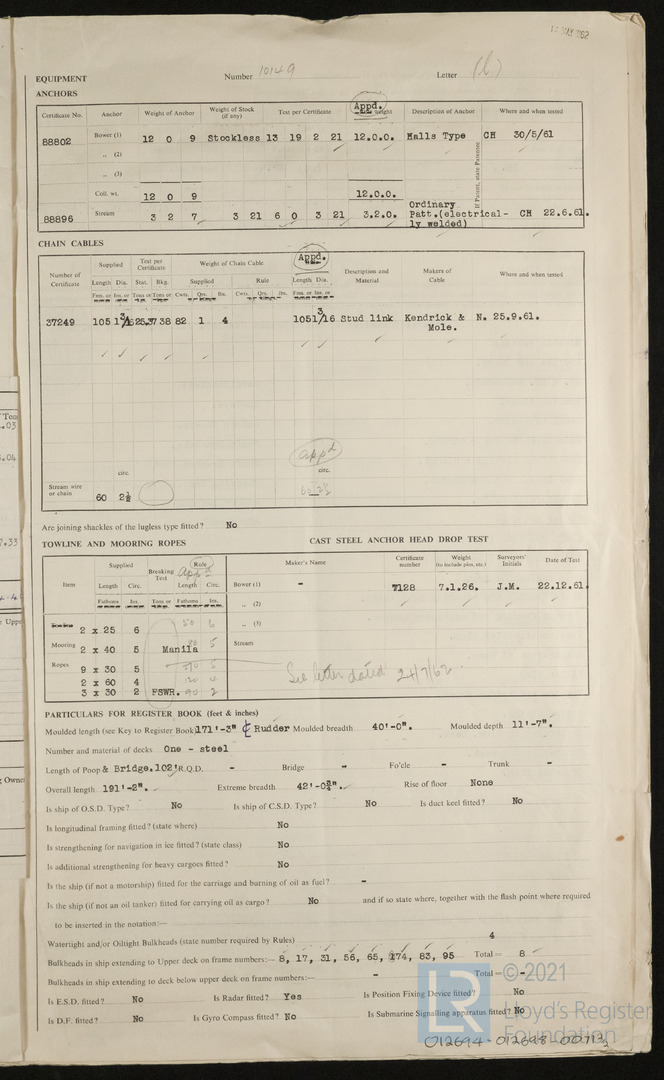 EQUIPMENT Number 10149 Letter (l)
ANCHORS
Certificate No. Anchor Weight of Anchor Weight of Stock (if any) Test per Certificate Appd. weight Description of Anchor Where and when tested
88802 Bower (1) 12 0 9 Stockless 13 19 2 21 12.0.0. Halls Type CH 30/5/61
„ (2)
„ (3)
If Patent, state Patentee
Coll. wt. 12 0 9 12.0.0.
88896 Stream 3 2 7 3 21 6 0 3 21 3.2.0. Ordinary Patt.(electrical-ly welded) CH 22.6.61.
CHAIN CABLES
Number of Certificate Supplied Test per Certificate Weight of Chain Cable Appd. Description and Material Makers of Cable Where and when tested
Length Dia. Stat. Bkg. Supplied Rule Length Dia.
Cwts. Qrs. lbs. Cwts. Qrs. lbs.
37249 105 1 3/16 25.37 38 82 1 4 105 1 3/16 Stud link Kendrick & Mole. N. 25.9.61.
appd
circ. circ.
Stream wire or chain 60 2½ 60 2½
Are joining shackles of the lugless type fitted? No
TOWLINE AND MOORING ROPES CAST STEEL ANCHOR HEAD DROP TEST
Item Supplied Breaking Test Rule Appd Maker's Name Certificate number Weight (to include pins, etc.) Surveyors' Initials Date of Test
Length Circ. Length Circ.
Fathoms Ins. Tons or Fathoms Ins.
Bower (1) - 7128 7.1.26. J.M. 22.12.61.
„ (2)
„ (3)
Stream
2 x 25 6
Mooring 2 x 40 5 Manila 5
Ropes 9 x 30 5
2 x 60 4
3 x 30 2 FSWR. 90 2
See letter dated 24/7/62
PARTICULARS FOR REGISTER BOOK (feet & inches)
Moulded length (see Key to Register Book) 171'-3" ₵ Rudder Moulded breadth 40'-0". Moulded depth 11'-7".
Number and material of decks One - steel
Length of Poop & Bridge.102' R.Q.D. - Bridge - Fo'cle - Trunk -
Overall length 191'-2". Extreme breadth 42'-0¾". Rise of floor None
Is ship of O.S.D. Type? No Is ship of C.S.D. Type? No Is duct keel fitted? No
Is longitudinal framing fitted? (state where) No
Is strengthening for navigation in ice fitted? (state class) No
Is additional strengthening for heavy cargoes fitted? No
Is the ship (if not a motorship) fitted for the carriage and burning of oil as fuel? -
Is the ship (if not an oil tanker) fitted for carrying oil as cargo? No and if so state where, together with the flash point where required
to be inserted in the notation:—
Watertight and/or Oiltight Bulkheads (state number required by Rules) 4
Bulkheads in ship extending to Upper deck on frame numbers:— 8, 17, 31, 56, 65, 174, 83, 95 Total = 8
Bulkheads in ship extending to deck below upper deck on frame numbers:— - Total = -
Is E.S.D. fitted? No Is Radar fitted? Yes Is Position Fixing Device fitted? No
Is D.F. fitted? No Is Gyro Compass fitted? No Is Submarine Signalling apparatus fitted? No
LR © 2021
Lloyd's Register
Foundation
012694-012698-0071 3/3